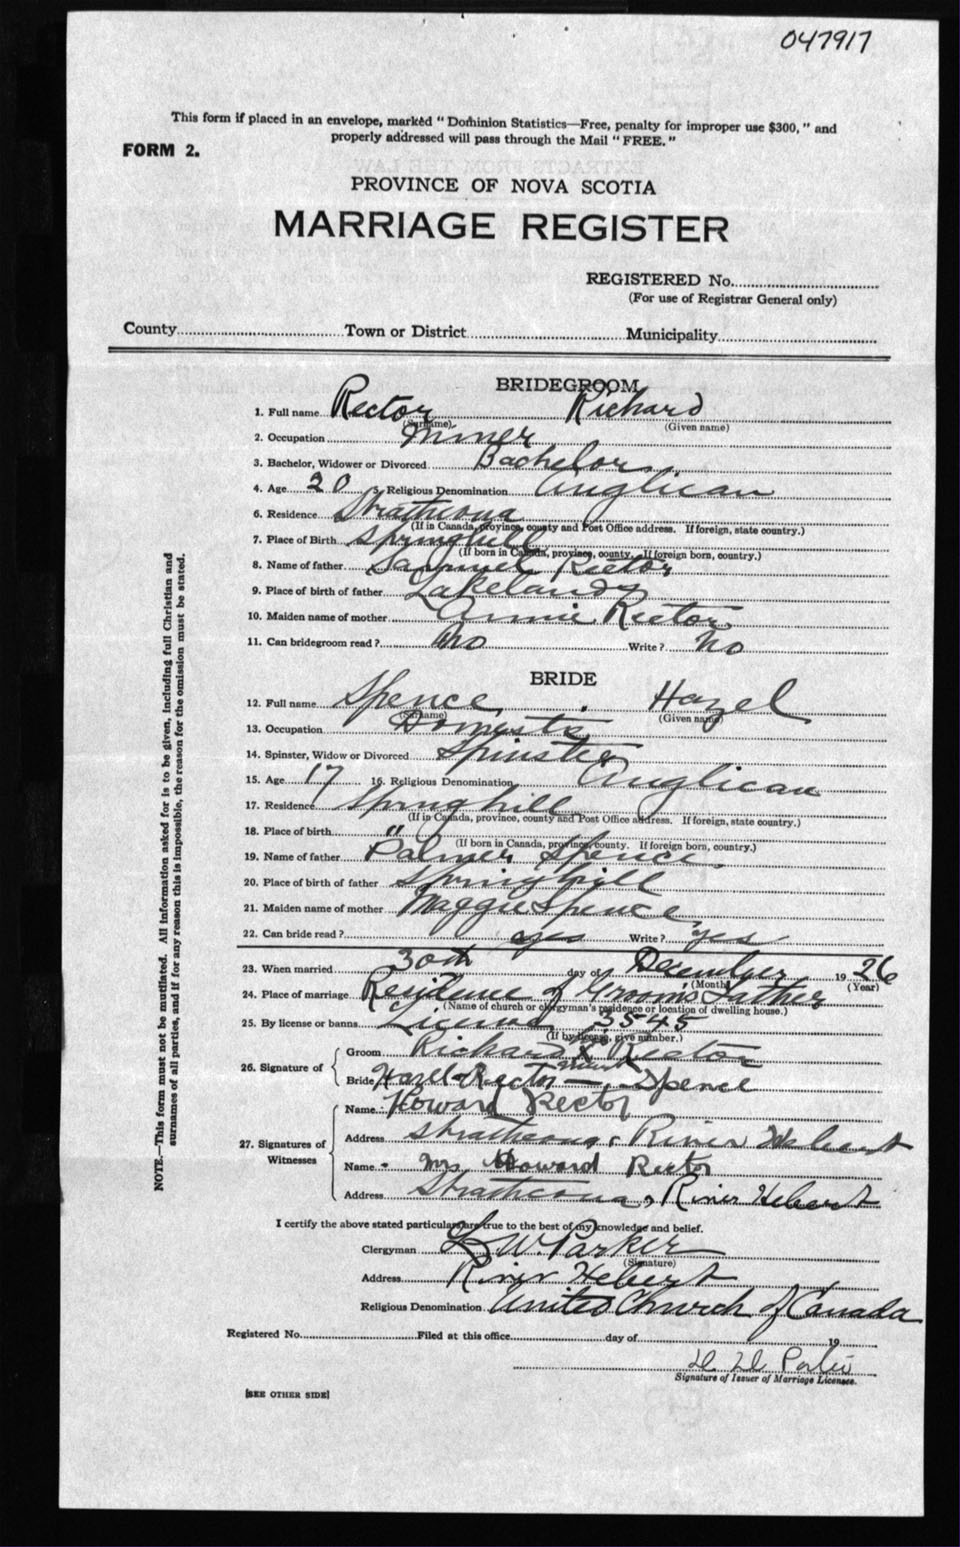 047917
This form if placed in an envelope, marked " Dominion Statistics—Free, penalty for improper use $300, " and
properly addressed will pass through the Mail " FREE. "
FORM 2.
PROVINCE OF NOVA SCOTIA
MARRIAGE REGISTER
REGISTERED No.
(For use of Registrar General only)
County Town or District Municipality
BRIDEGROOM
1. Full name Rector Richard
(Surname) (Given name)
2. Occupation Miner
3. Bachelor, Widower or Divorced Bachelor
4. Age 20 5. Religious Denomination Anglican
6. Residence Strathcona
(If in Canada, province, county and Post Office address. If foreign, state country.)
7. Place of Birth Springhill
(If born in Canada, province, county. If foreign born, country.)
8. Name of father Samuel Rector
9. Place of birth of father Lakelands
10. Maiden name of mother Annie Rector
11. Can bridegroom read ? No Write ? No
BRIDE
12. Full name Spence Hazel
(Surname) (Given name)
13. Occupation Domestic
14. Spinster, Widow or Divorced Spinster
15. Age 17 16. Religious Denomination Anglican
17. Residence Springhill
(If in Canada, province, county and Post Office address. If foreign, state country.)
18. Place of birth "
(If born in Canada, province, county. If foreign born, country.)
19. Name of father Palmer Spence
20. Place of birth of father Springhill
21. Maiden name of mother Maggie Spence
22. Can bride read ? yes Write ? yes
23. When married 30th day of December 1926
(Month) (Year)
24. Place of marriage Residence of Groom's Father
(Name of church or clergyman's residence or location of dwelling house.)
25. By license or banns License 3545
(If by license, give number.)
26. Signature of Groom Richard X Rector
mark
Bride Hazel Rector — Spence
27. Signatures of Witnesses
Name Howard Rector
Address Strathcona, River Hebert
Name Mrs Howard Rector
Address Strathcona, River Hebert
I certify the above stated particulars are true to the best of my knowledge and belief.
Clergyman W. Parker
(Signature)
Address River Hebert
Religious Denomination United Church of Canada
Registered No. Filed at this office day of 19
Signature of Issuer of Marriage Licenses.
[SEE OTHER SIDE]
NOTE.—This form must not be mutilated. All information asked for is to be given, including full Christian and
surnames of all parties, and if for any reason this is impossible, the reason for the omission must be stated.